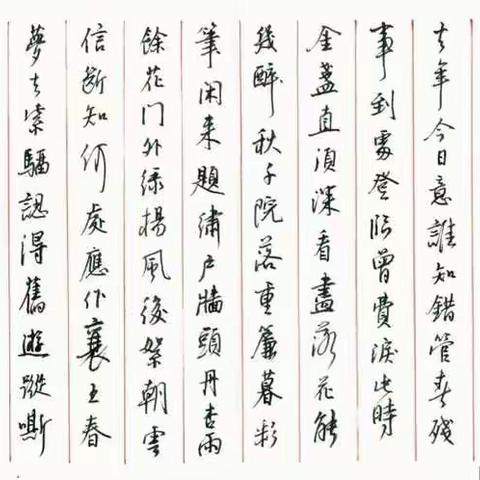 去年今日意誰知錯管春殘
事到處登臨曾費淚此時
金盞直須深看盡落花能
幾醉秋千院落重簾暮彩
筆闲来題繡户牆頭丹杏雨
餘花门外绿楊風後絮朝雲
信断知何處應作襄王春
夢去紫騮認得舊遊蹤嘶